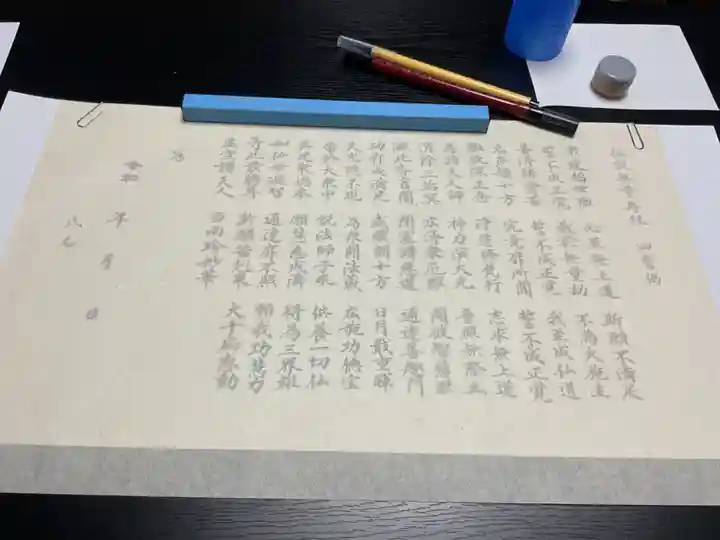 仏説無量寿経 四誓偈
我建超世願 必至無上道 斯願不満足
誓不成正覚 我於無量劫 不為大施主
普済諸貧苦 誓不成正覚 我至成仏道
名声超十方 究竟靡所聞 誓不成正覚
離欲深正念 浄慧修梵行 志求無上道
為諸天人師 神力演大光 普照無際土
消除三垢冥 広済衆厄難 開彼智慧眼
滅此昏盲闇 閉塞諸悪道 通達善趣門
功祚成満足 威曜朗十方 日月戢重暉
天光隠不現 為衆開法蔵 広施功徳宝
常於大衆中 説法師子吼 供養一切仏
具足衆徳本 願慧悉成満 得為三界雄
如仏無礙智 通達靡不照 願我功慧力
等此最勝尊 斯願若剋果 大千応感動
虚空諸天人 当雨珍妙華
為
令和 年 月 日